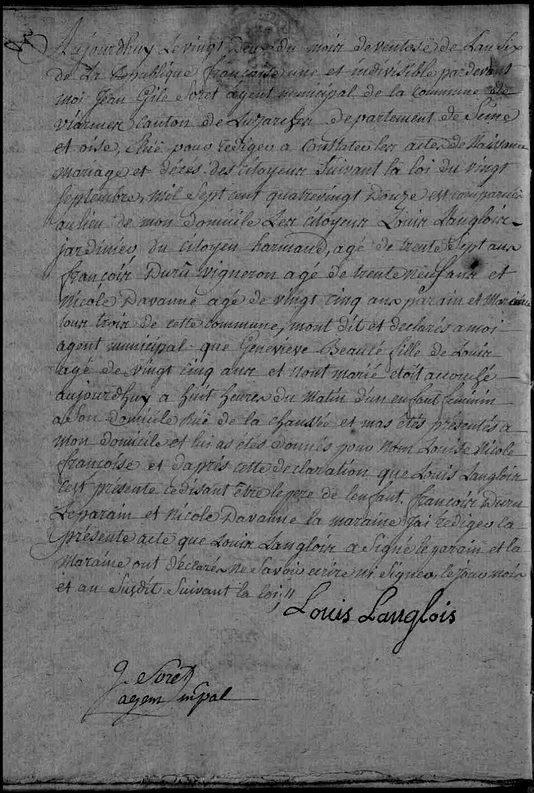 Aujourdhuy Le vingt deux du mois de ventose de Lan Six
de La Republique francaise une et indivisible pardevant
moi Jean Gile Soret agent municipal de la commune de
viarmer canton de Luzarcher departement de Seine
et oise, elu pour rediger a Constater les actes de Naissance
mariage et décès des citoyens suivant la loi du vingt
Septembre mil Sept cent quatrevingt douze est comparu
au lieu de mon domicile Les citoyens Louis Langlois
jardinier du citoyen harmand, agé de trente Sept ans
françois Duru vigneron agé de trente neuf ans et
Nicole Davanne agé de vingt cinq ans parain et Maraine
tous trois de cette commune, mont dit et declarés a moi
agent municipal que Geneviève Beaucé fille de Louis
agé de vingt cinq ans et nont marié etoit accouché
aujourdhuy a huit heures du matin dun enfant féminin
a Son domicile Rüe de la chaussée et mas etés présentés a
mon domicile et lui as etes donnés pour Nom Louise Nicole
françoise et daprès cette declaration que Louis Langlois
cest présenté ce disant être le pere de lenfant. françois Duru
Le parain et Nicole Davanne la maraine Jai rediges la
présente acte que Louis Langlois a Signé le parain et la
Maraine ont déclarés ne Savoir ecrire ni Signer, le jour mois
et an Susdit Suivant la loi //
Louis Langlois
J Soret
agen mpal